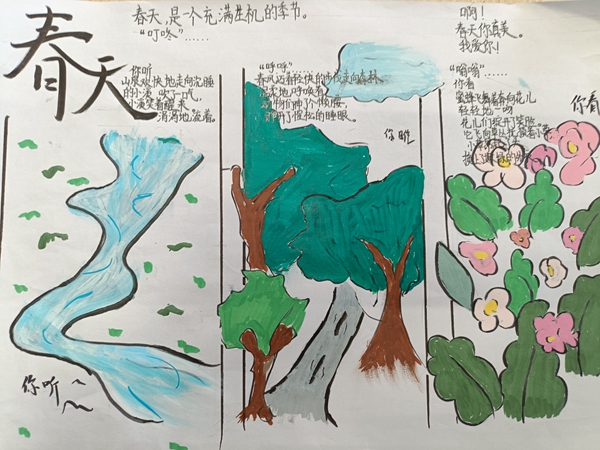 春天
春天,是一个充满生机的季节。
“叮咚”……
你听
山泉欢快地走向沉睡
的小溪,吹了一口气,
小溪笑着醒来,
涓涓地流着。
你听
“呼呼”……
春风迈着轻快的步伐走向森林。
动物们伸了个懒腰,
睁开了惺松的睡眼。
你瞧
啊!
春天你真美。
我爱你!
“嗡嗡”……
你看
蜜蜂飞舞着奔向花儿
轻轻地一吻
花儿们绽开了笑脸。
你看